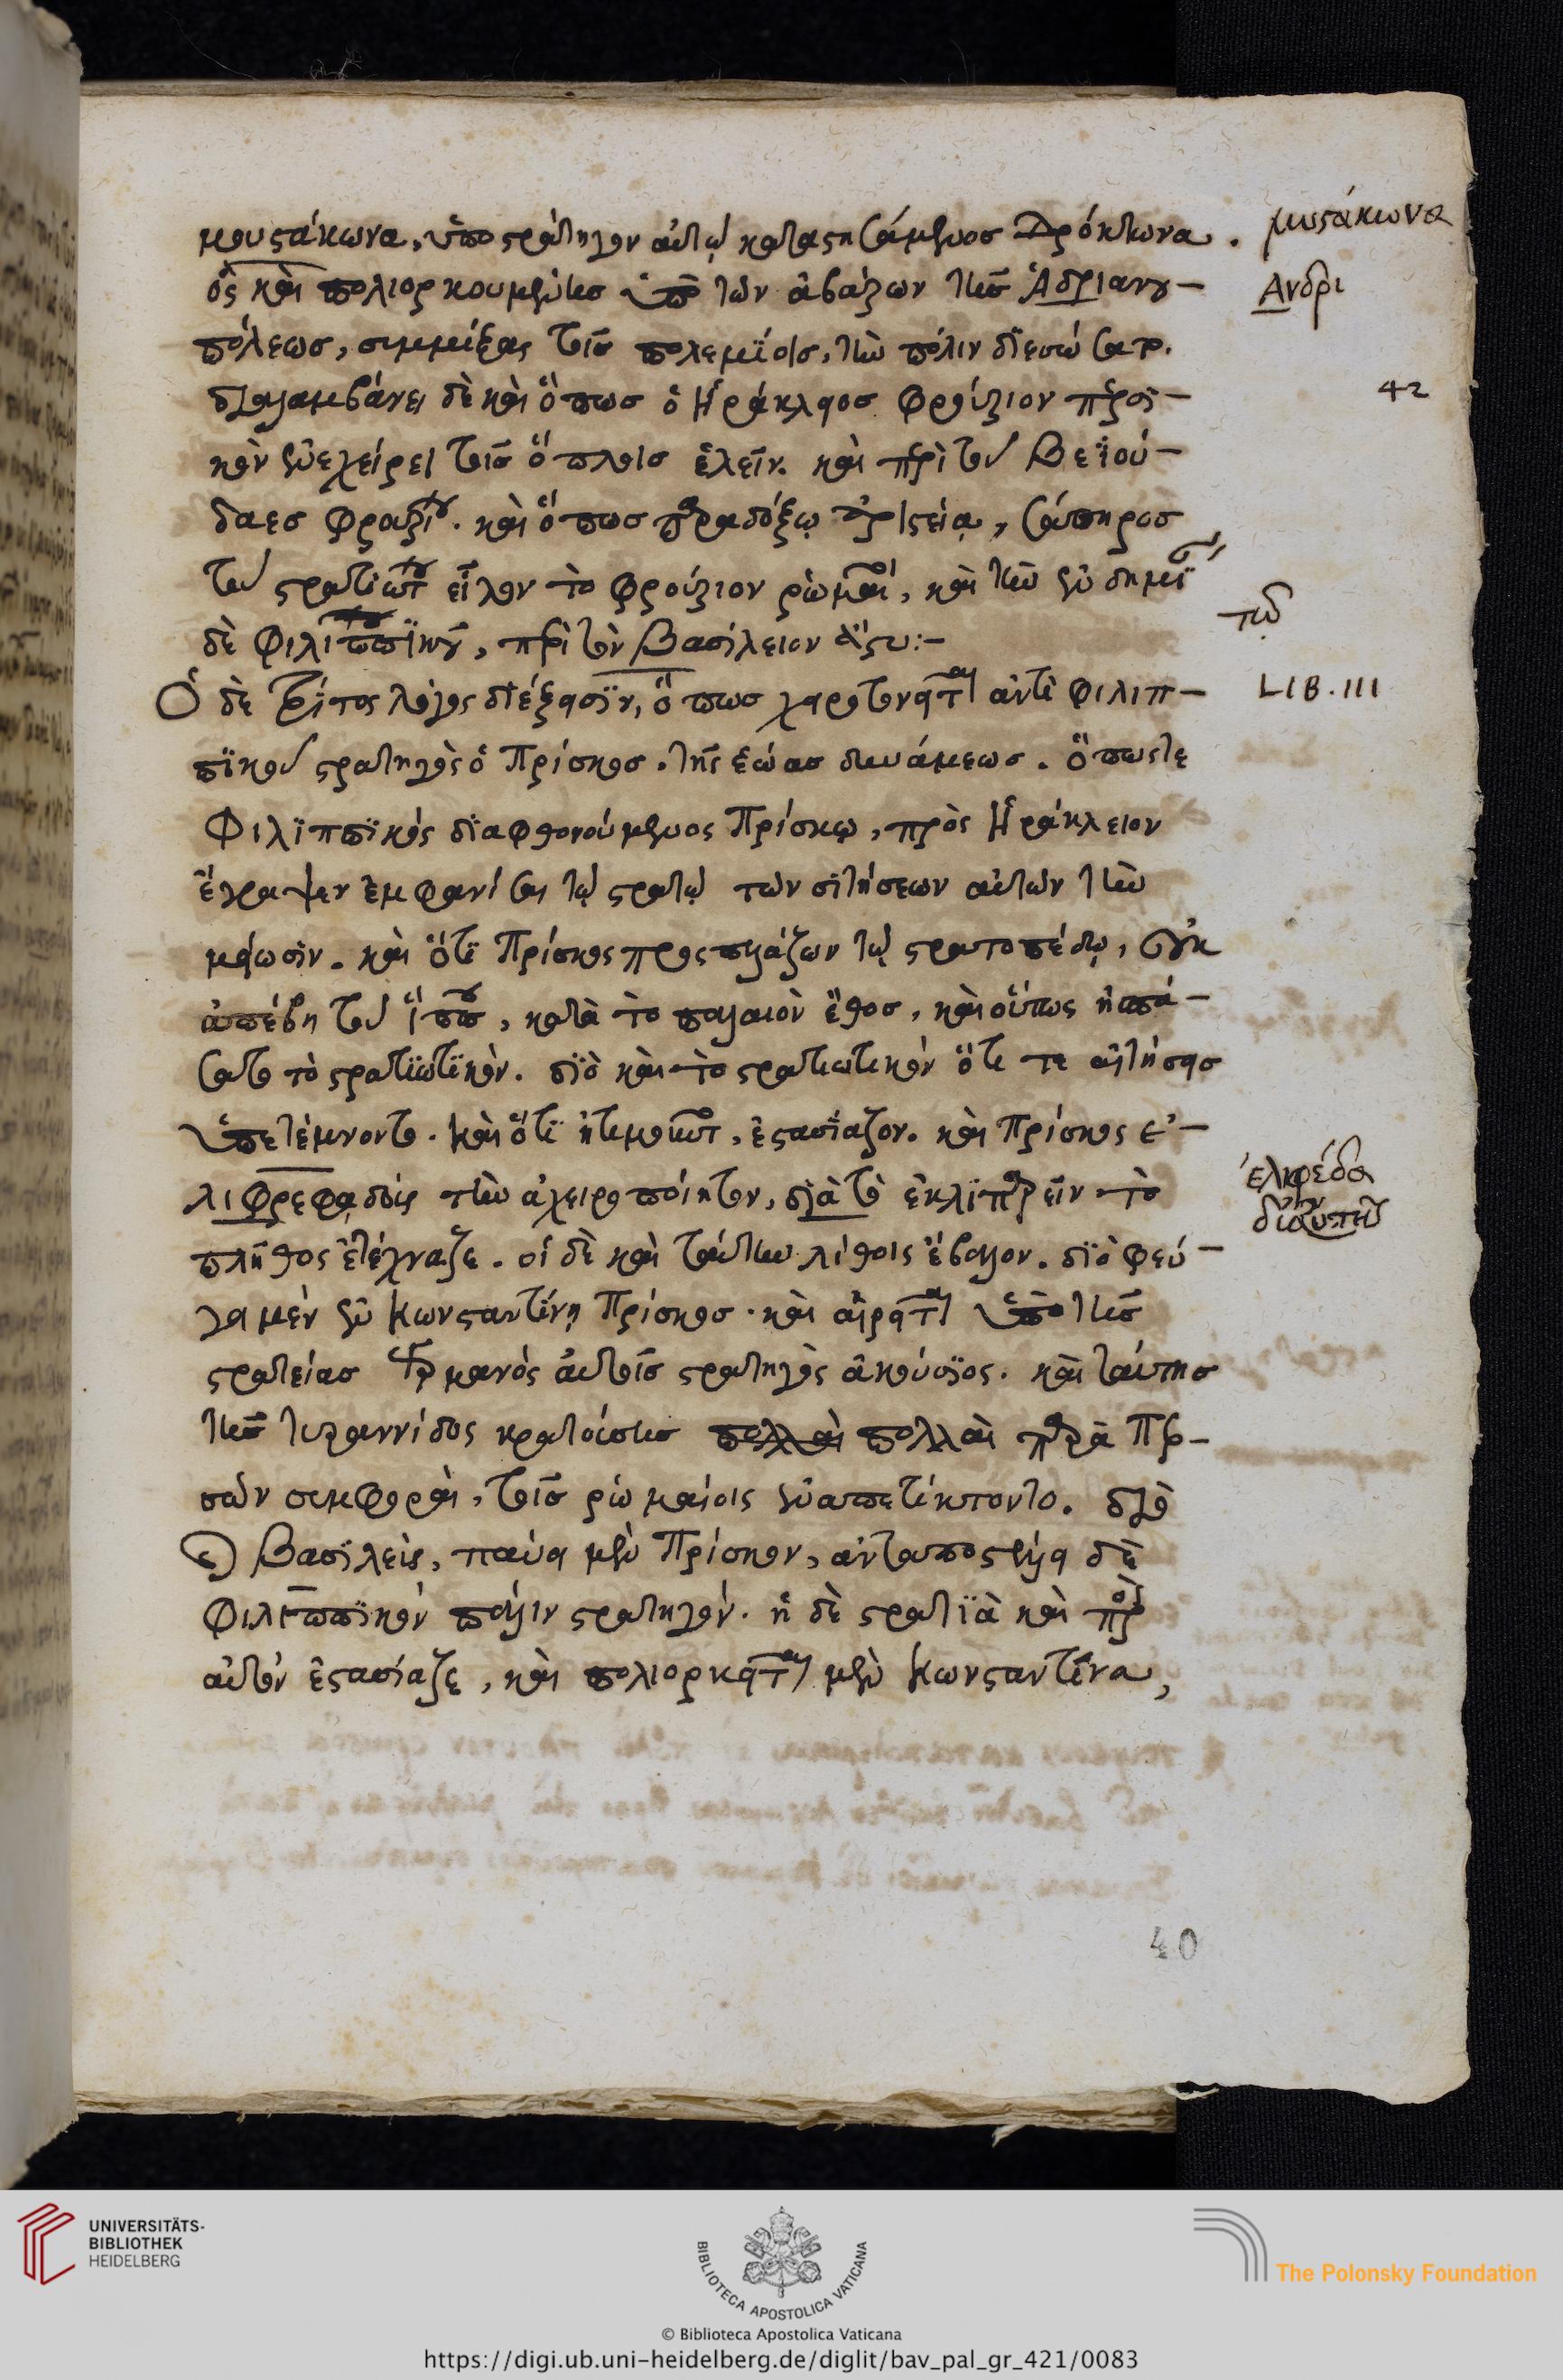 μουστάκωνα, ὑποστράτηγον αὐτῷ καταστησάμενος Δρόκτωνα.
μυστάκωνα
ὃς καὶ πολιορκουμένης ὑπὸ τῶν ἀβάρων τῆς Ἀδριανου-
Ανδρι
πόλεως, συμμίξας τοῖς πολεμίοις, τὴν πόλιν διεσώσατο.
διαλαμβάνει δὲ καὶ ὅπως ὁ Ἡράκλειος φρούριον περσι-
42
κὸν ἐνεχείρει τοῖς ὅπλοις ἑλεῖν. καὶ περὶ τοῦ Βεϊού-
δαες φρουρίου. καὶ ὅπως παραδόξῳ ἀριστείᾳ, σάπηρος
τοῦ στρατιώτου εἷλον τὸ φρούριον ῥωμαῖοι, καὶ τὴν ἐνδημίαν
δὲ Φιλιππικοῦ, περὶ τὸν Βασίλειον ἄστυ:-
τοῦ
Ὁ δὲ τρίτος λόγος διέξεισιν, ὅπως χειροτονεῖται ἀντὶ Φιλιπ-
LIB. III
πικοῦ στρατηγὸς ὁ Πρίσκος. τῆς ἑῴας δυνάμεως. ὅπως τε
Φιλιππικὸς διαφθονούμενος Πρίσκῳ, πρὸς Ἡράκλειον
ἔγραψεν ἐμφανίσαι τῷ στρατῷ τῶν σιτήσεων αὐτῶν τὴν
μείωσιν. καὶ ὅτι Πρίσκος προσπελάζων τῷ στρατοπέδῳ, οὐκ
ἀπέβη τοῦ ἵππου, κατὰ τὸ παλαιὸν ἔθος, καὶ οὕπως ἠσπά-
σατο τὸ στρατιωτικόν. διὸ καὶ τὸ στρατιωτικὸν ὅτι τε αἱ σιτήσεις
ὑπετέμνοντο. καὶ ὅτι ἠτίμωντο, ἐστασίαζον. καὶ Πρίσκος ἐ-
λιφρεφαδοὺς τὴν ἀχειροποίητον, διὰ τὸ ἐκλιπαρεῖν τὸ
ἐλκφρέδα
πλῆθος ἐτέχναζε. οἱ δὲ καὶ ταύτην λίθοις ἔβαλον. διὸ φεύ-
γει μὲν ἐν Κωνσταντίνῃ Πρίσκος. καὶ αἱρεῖται ὑπὸ τῆς
στρατείας Γερμανὸς αὐτοῖς στρατηγὸς ἀκούσιος. καὶ ταύτης
τῆς τυραννίδος κρατούσης πολλαὶ πολλαὶ παρὰ Περ-
σῶν συμφοραὶ, τοῖς ῥωμαίοις ἐναπετίκτοντο. διὸ
ὁ βασιλεὺς, παύει μὲν Πρίσκον, ἀνταποστέλλει δὲ
Φιλιππικὸν πάλιν στρατηγόν. ἡ δὲ στρατιὰ καὶ πρὸς
αὐτὸν ἐστασίαζε, καὶ πολιορκεῖται μὲν Κωνσταντῖνα,
40
UNIVERSITÄTS-
BIBLIOTHEK
HEIDELBERG
BIBLIOTECA APOSTOLICA VATICANA
The Polonsky Foundation
© Biblioteca Apostolica Vaticana
https://digi.ub.uni-heidelberg.de/diglit/bav_pal_gr_421/0083